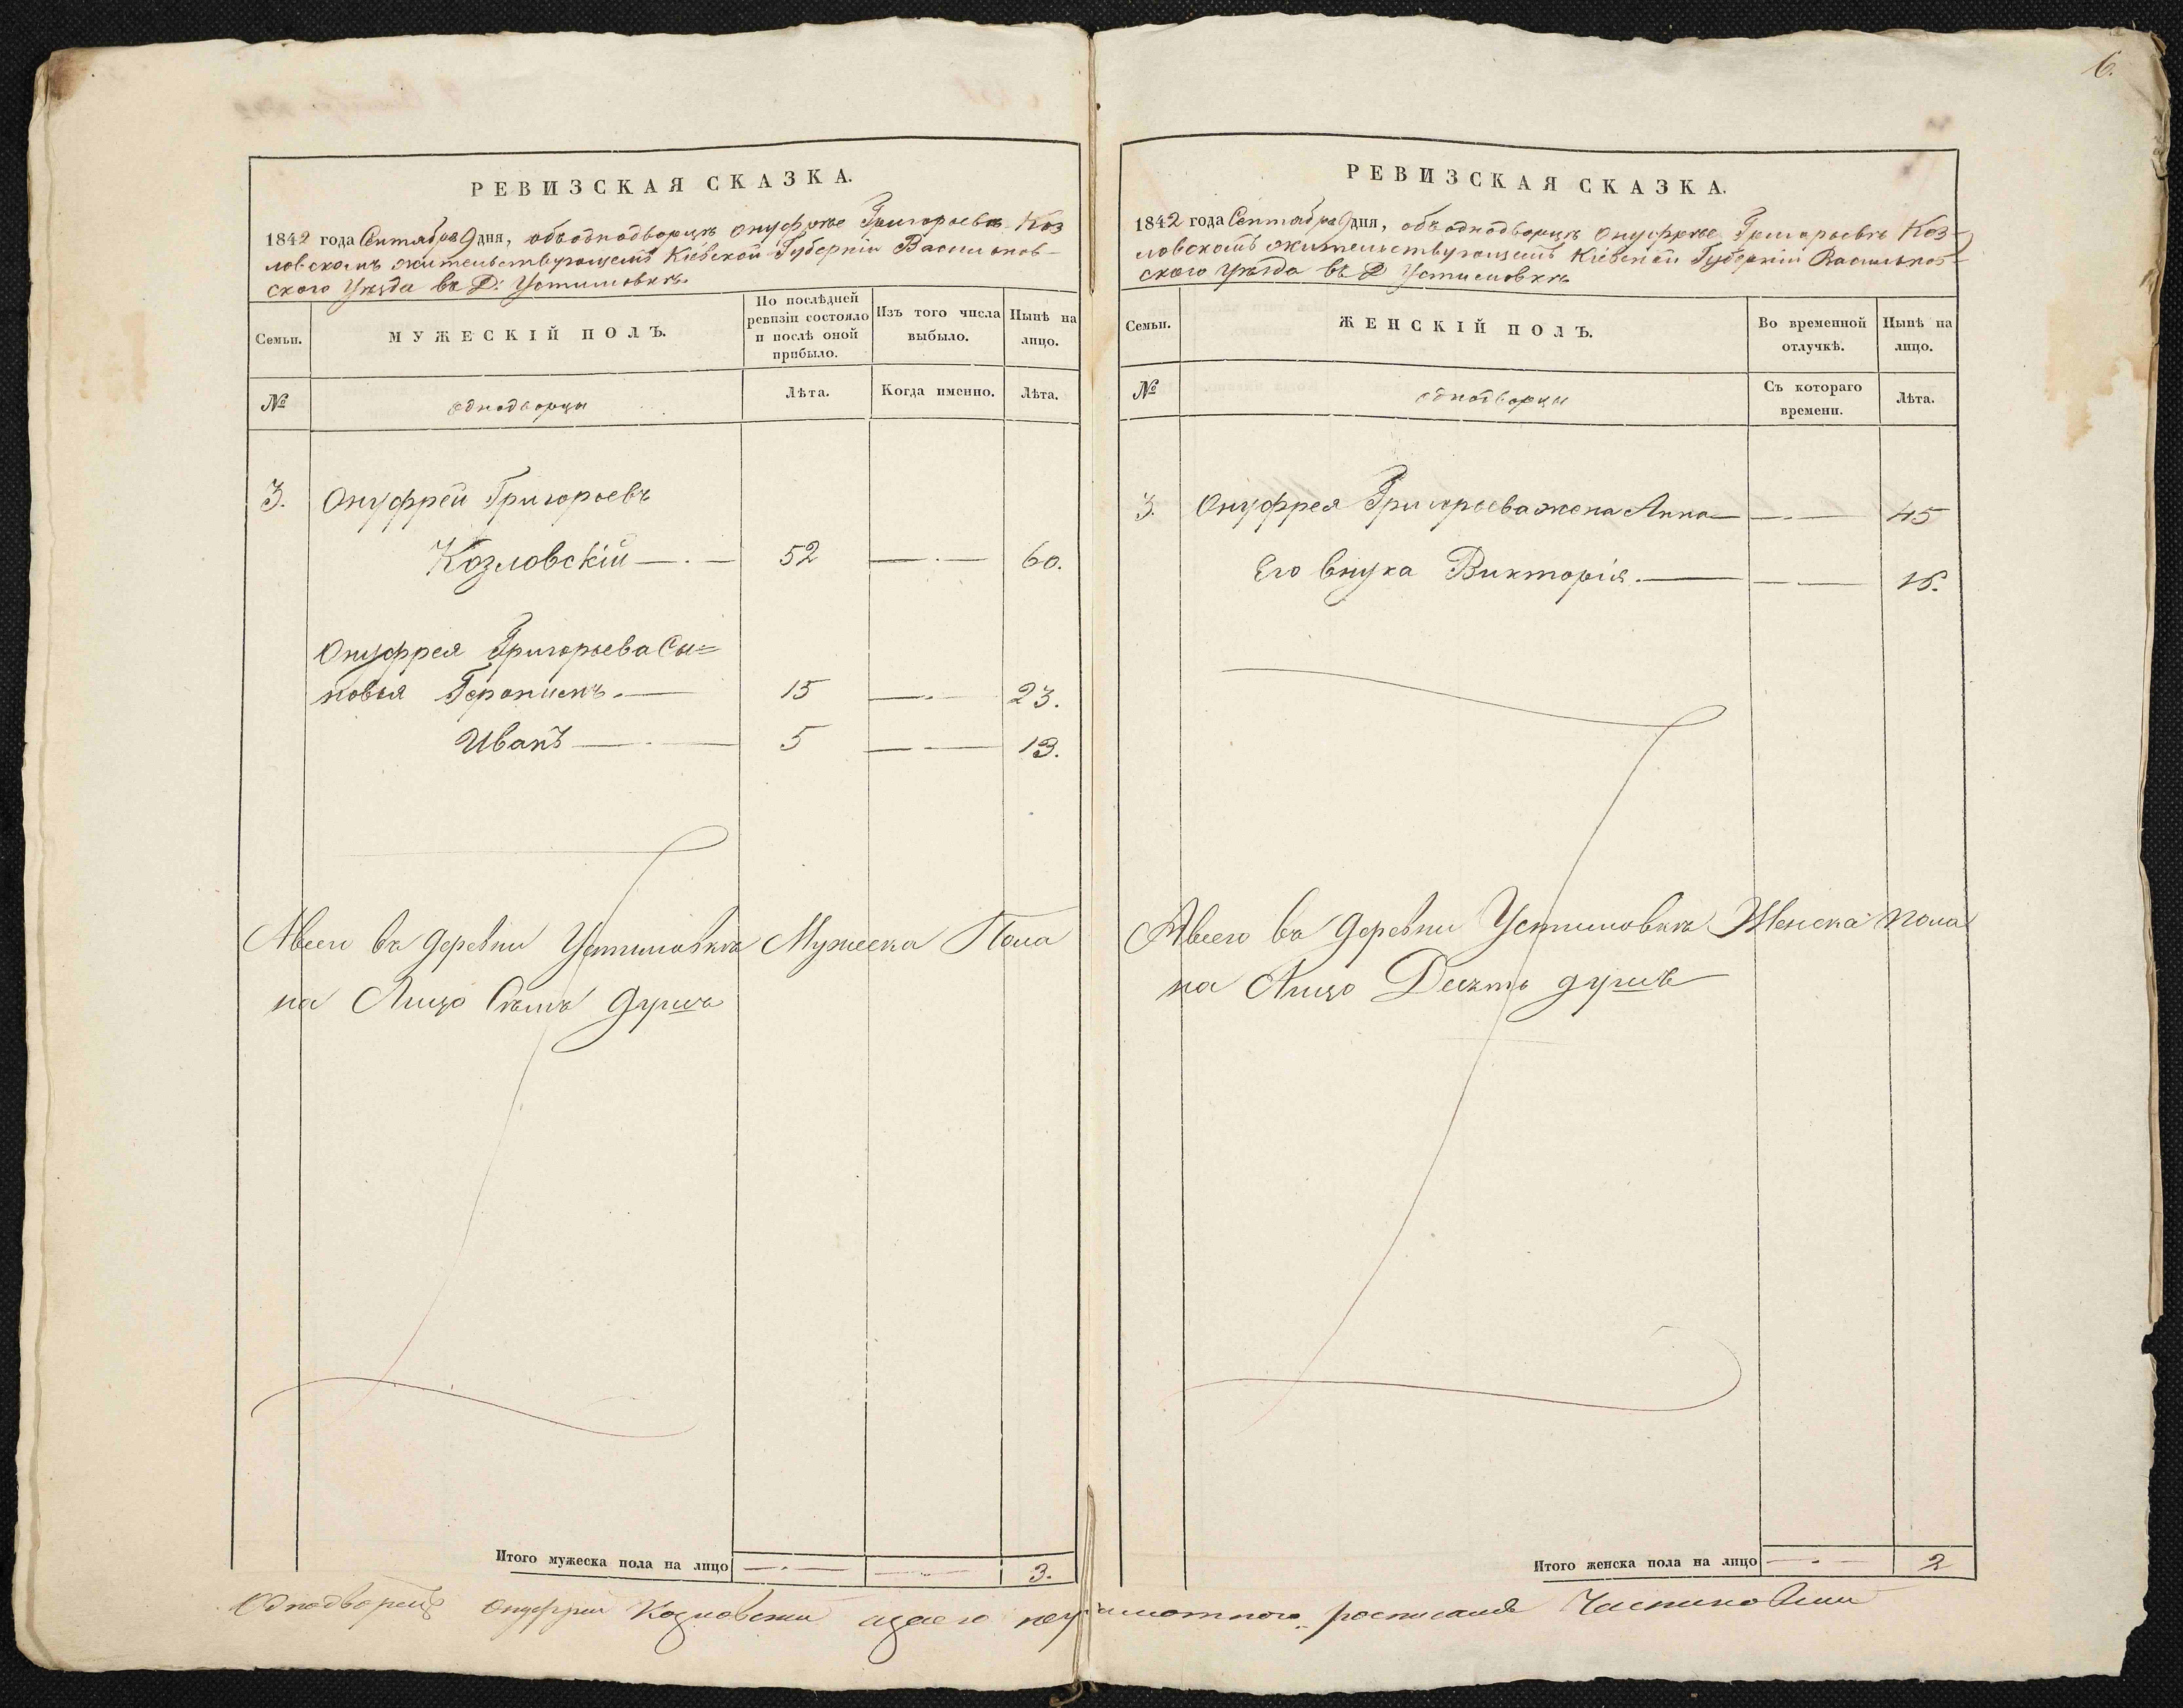 6.
РЕВИЗСКАЯ СКАЗКА.
1842 года Сентября 9 дня, объ однодворцѣ Онуфріе Григорьевѣ Коз
ловскомъ жительствующемъ Кіевской Губерніи Васильков-
ского Уѣзда въ Д: Устимовкѣ
Семьи.
МУЖЕСКІЙ ПОЛЪ.
По послѣдней ревизіи состояло и послѣ оной прибыло.
Изъ того числа выбыло.
Нынѣ на лицо.
№
однодворцы
Лѣта.
Когда именно.
Лѣта.
3. Онуфрей Григорьевъ
Козловскій 52 60.
Онуфрея Григорьева Сы=
новья 15 23.
Иванъ 5 13.
Авсего въ деревни Устимовкѣ Мужеска Пола
на Лицо Сѣмъ душъ
Итого мужеска пола на лицо 3.
РЕВИЗСКАЯ СКАЗКА.
1842 года Сентября 9 дня, объ однодворцѣ Онуфріе Григорьевѣ Коз-
ловскомъ жительствующемъ Кіевской Губерніи Васильков-
ского Уѣзда въ Д Устимовкѣ
Семьи.
ЖЕНСКІЙ ПОЛЪ.
Во временной отлучкѣ.
Нынѣ на лицо.
№
однодворцы
Съ котораго времени.
Лѣта.
3. Онуфрея Григорьева жена Анна 45
Его внука Викторія. 16.
Авсего въ деревни Устимовкѣ Женска пола
на Лицо Десять душъ
Итого женска пола на лицо 2
Однодворецъ Онуфрей Козловски азаего неграмотного росписалъ